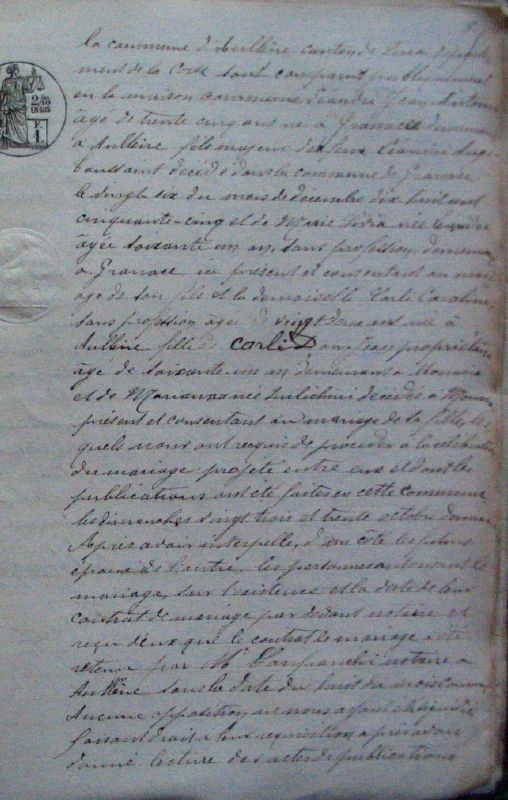 la commune d'Aullène canton de Serra départe
ment de la Corse sont comparus publiquement
en la maison commune Jean Antoine
âgé de trente cinq ans né à Granace demeurant
à Aullène fils majeur de feu
décédé dans la commune de Granace
le vingt six du mois de décembre dix huit cent
cinquante-cinq et de Marie née
âgée soixante un an, sans profession, demeu
à Granace ici présent et consentant au mari
age de son fils et la demoiselle Carli Caroline
sans profession âgée de vingt deux ans née à
Aullène fille de Carli Don Jean propriétaire
âgé de soixante un an demeurant à
et de Marianna née décédée à
présent et consentant au mariage de sa fille, les
quels nous ont requis de procéder à la célébration
du mariage projeté entre eux et dont les
publications ont été faites en cette commune
les dimanches vingt trois et trente octobre dernier
Après avoir interpellé, d'un côté les futurs
époux de l'autre, les personnes autorisant le
mariage, sur l'existence et la date de leur
contrat de mariage par devant notaire et
reçu d'eux que le contrat de mariage a été
retenu par Mr notaire à
Aullène sous la date du huit du mois courant
Aucune opposition ne nous a faite
faisant droit à leur requisition après avoir
donné lecture des actes de publications
2,40
EN SUS